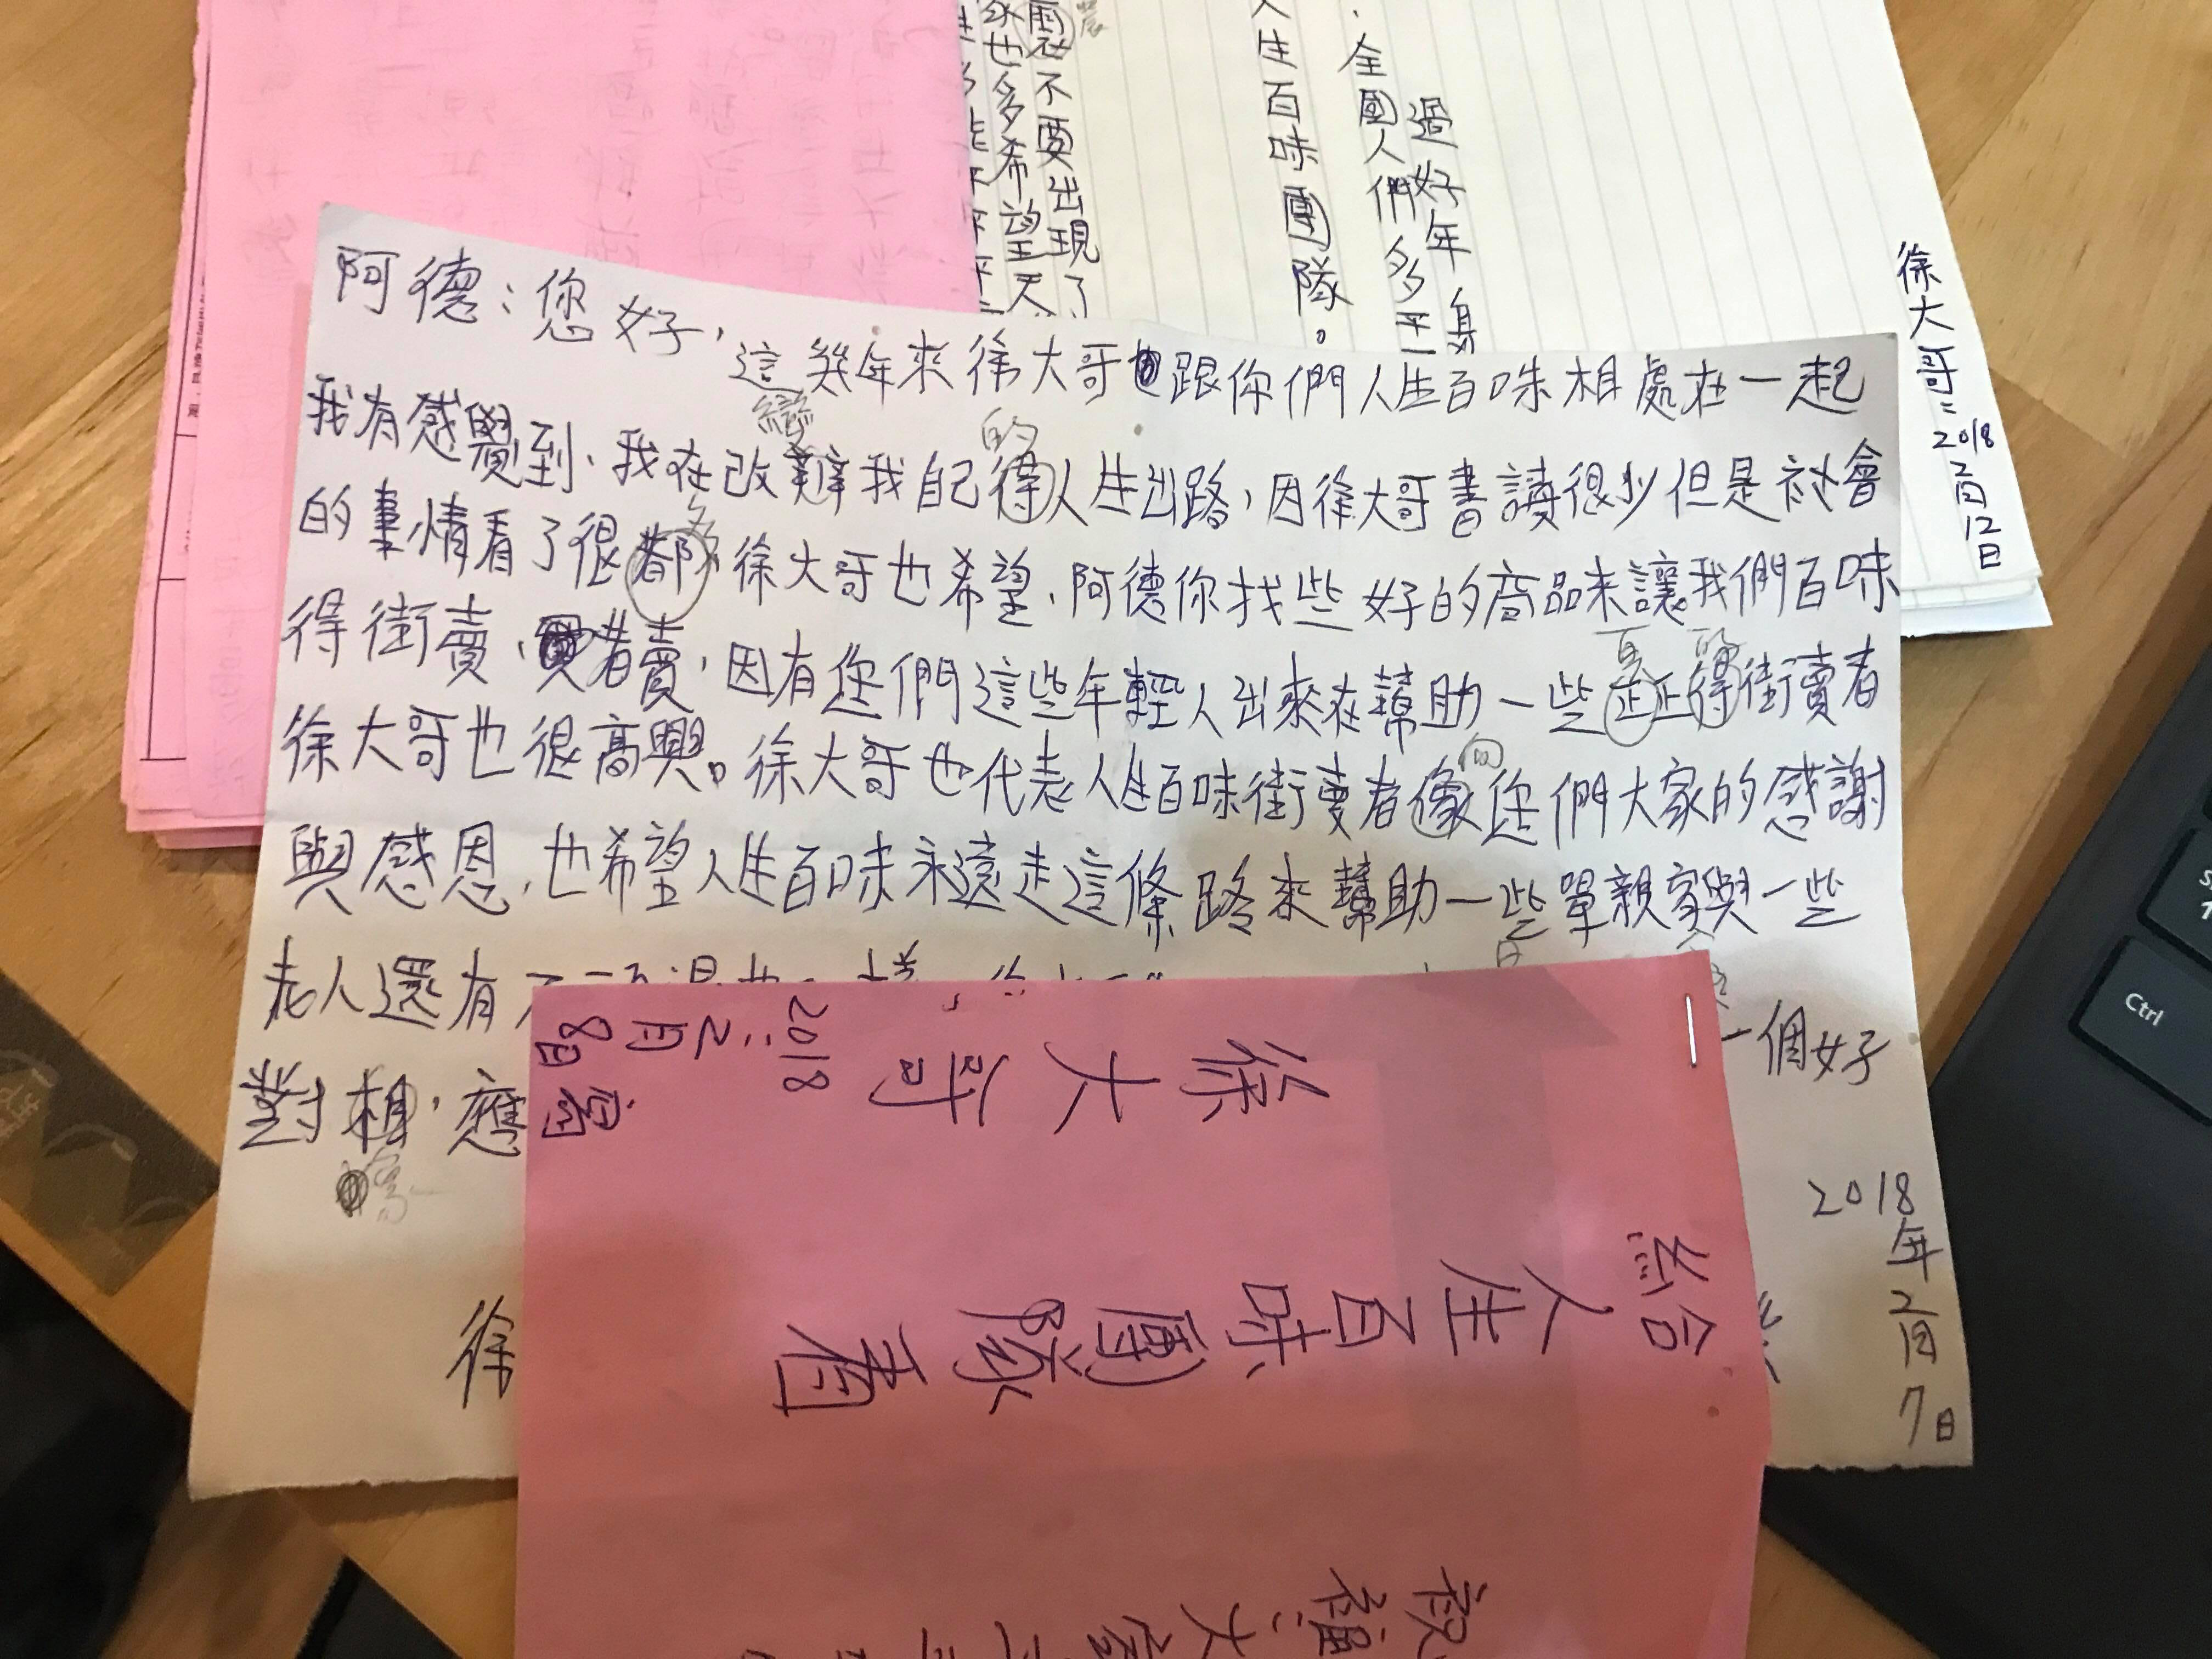 裂不要出現了
也多希望天
人生百味團隊。
全國人們多平
過好年 身
徐大哥:2018
2月12日
阿德:您好,這幾年來徐大哥也跟你們人生百味相處在一起
變 的
我有感覺到、我在改辦我自己得人生出路,因徐大哥書讀很少但是社會
多
的事情看了很都,徐大哥也希望、阿德你找些好的商品來讓我們百味
真 的
得街賣、者賣,因有您們這些年輕人出來在幫助一些正正得街賣者
向
徐大哥也很高興。徐大哥也代表人生百味街賣者像您們大家的感謝
與感恩,也希望人生百味永遠走這條路來幫助一些單親家與一些
老人還有
一個好
對相,應
徐
2018
年
2月
7日
給
人生百味團隊看
徐大哥
2018
:2月
8日寫
祝福大家
Ctrl